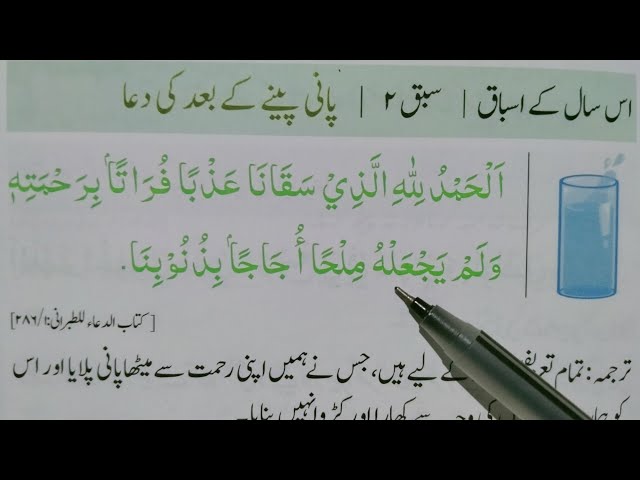 اس سال کے اسباق | سبق ۲ | پانی پینے کے بعد کی دعا
اَلْحَمْدُ لِلّٰهِ الَّذِيْ سَقَانَا عَذْبًا فُرَاتًا بِرَحْمَتِهٖ
وَلَمْ يَجْعَلْهُ مِلْحًا أُجَاجًا بِذُنُوْبِنَا.
[کتاب الدعاء للطبرانی: ۲۸۶/۱]
ترجمہ: تمام لیے ہیں، جس نے ہمیں اپنی رحمت سے میٹھا پانی پلایا اور اس
کو سے کھارا اور کڑوا نہیں بنایا۔